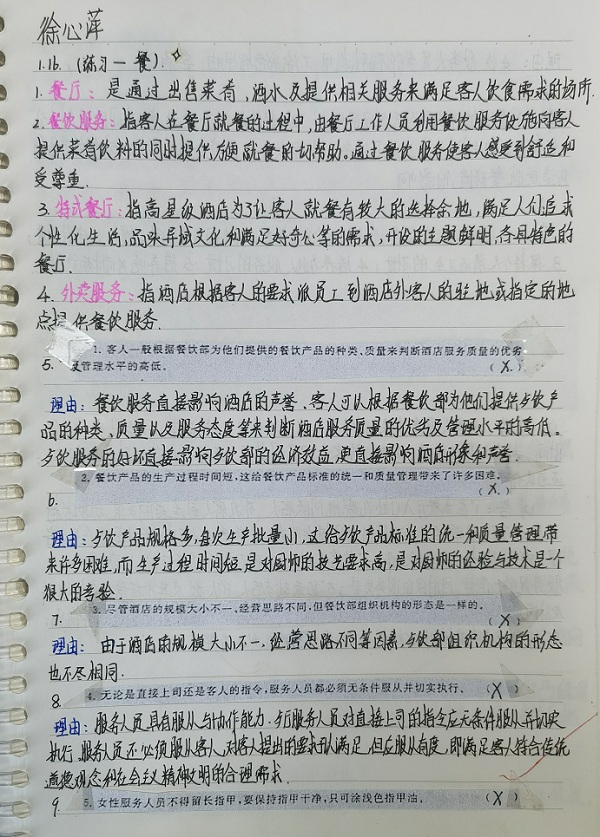 徐心萍
1.16.(练习一 餐).
1. 餐厅: 是通过出售菜肴、酒水及提供相关服务来满足客人饮食需求的场所.
2. 餐饮服务: 指客人在餐厅就餐的过程中,由餐厅工作人员利用餐饮服务设施向客人
提供菜肴饮料的同时提供方便就餐的一切帮助。通过餐饮服务使客人感受到舒适和
受尊重.
3. 特式餐厅: 指高星级酒店为了让客人就餐有较大的选择余地,满足人们追求
个性化生活,品味异域文化和满足好奇心等的需求,开设的主题鲜明、各具特色的
餐厅.
4. 外卖服务: 指酒店根据客人的要求派员工到酒店外客人的驻地或指定的地
点提供餐饮服务.
1. 客人一般根据餐饮部为他们提供的餐饮产品的种类、质量来判断酒店服务质量的优劣
5. 及管理水平的高低。 (X)
理由: 餐饮服务直接影响酒店的声誉、客人可以根据餐饮部为他们提供歺饮产
品的种类、质量以及服务态度等来判断酒店服务质量的优劣及管理水平的高低。
歺饮服务的好坏直接影响歺饮部的经济效益,更直接影响酒店形象和声誉.
2. 餐饮产品的生产过程时间短,这给餐饮产品标准的统一和质量管理带来了许多困难。
6. (X)
理由: 歺饮产品规格多,每次生产批量小,这给歺饮产品标准的统一和质量管理带
来许多困难,而生产过程时间短是对厨师的技艺要求高,是对厨师的经验与技术是一个
很大的考验.
7. 3. 尽管酒店的规模大小不一、经营思路不同,但餐饮部组织机构的形态是一样的。 (X)
理由: 由于酒店的规模大小不一,经营思路不同等因素,歺饮部组织机构的形态
也不尽相同.
8. 4. 无论是直接上司还是客人的指令,服务人员都必须无条件服从并切实执行。 (X)
理由: 服务人员具有服从与协作能力.歺厅服务人员对直接上司的指令应无条件服从并切实
执行.服务人员还必须服从客人,对客人提出的要求予以满足,但应服从有度,即满足客人符合传统
道德观念和社会主义精神文明的合理需求.
9. 5. 女性服务人员不得留长指甲,要保持指甲干净,只可涂浅色指甲油。 (X)